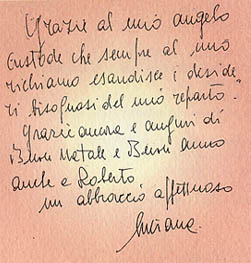 Grazie al mio angelo
custode che sempre al mio
richiamo esaudisce i deside-
ri bisognosi del mio reparto.
Grazie ancora e auguri di
Buon Natale e Buon anno
anche a Roberto
un abbraccio affettuoso
Luciana.